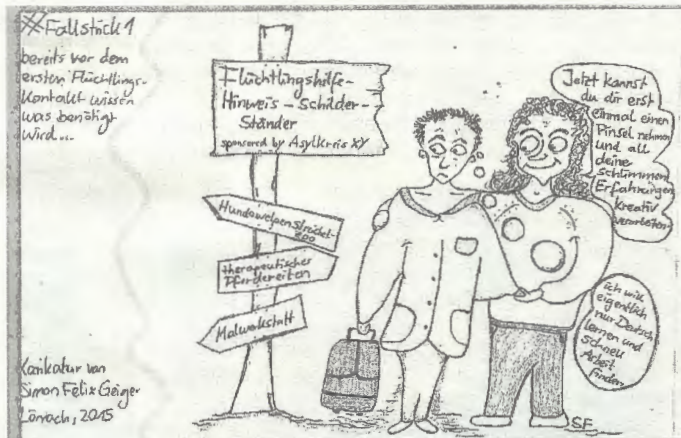 Fallstrick 1
bereits vor dem
ersten Flüchtlings-
Kontakt wissen
was benötigt
wird...
Flüchtlingshilfe-
Hinweis-Schilder-
Ständer
sponsored by Asylkreis XY
Hundewelpenstreichel-
zoo
therapeutisches
Pferdereiten
Malwerkstatt
Jetzt kannst
du dir erst
einmal einen
Pinsel nehmen
und all
deine
schlimmen
Erfahrungen
kreativ
verarbeiten.
ich will
eigentlich
nur Deutsch
lernen und
schnell
Arbeit
finden
Karikatur von
Simon Felix Geiger
Lörrach, 2015
SF